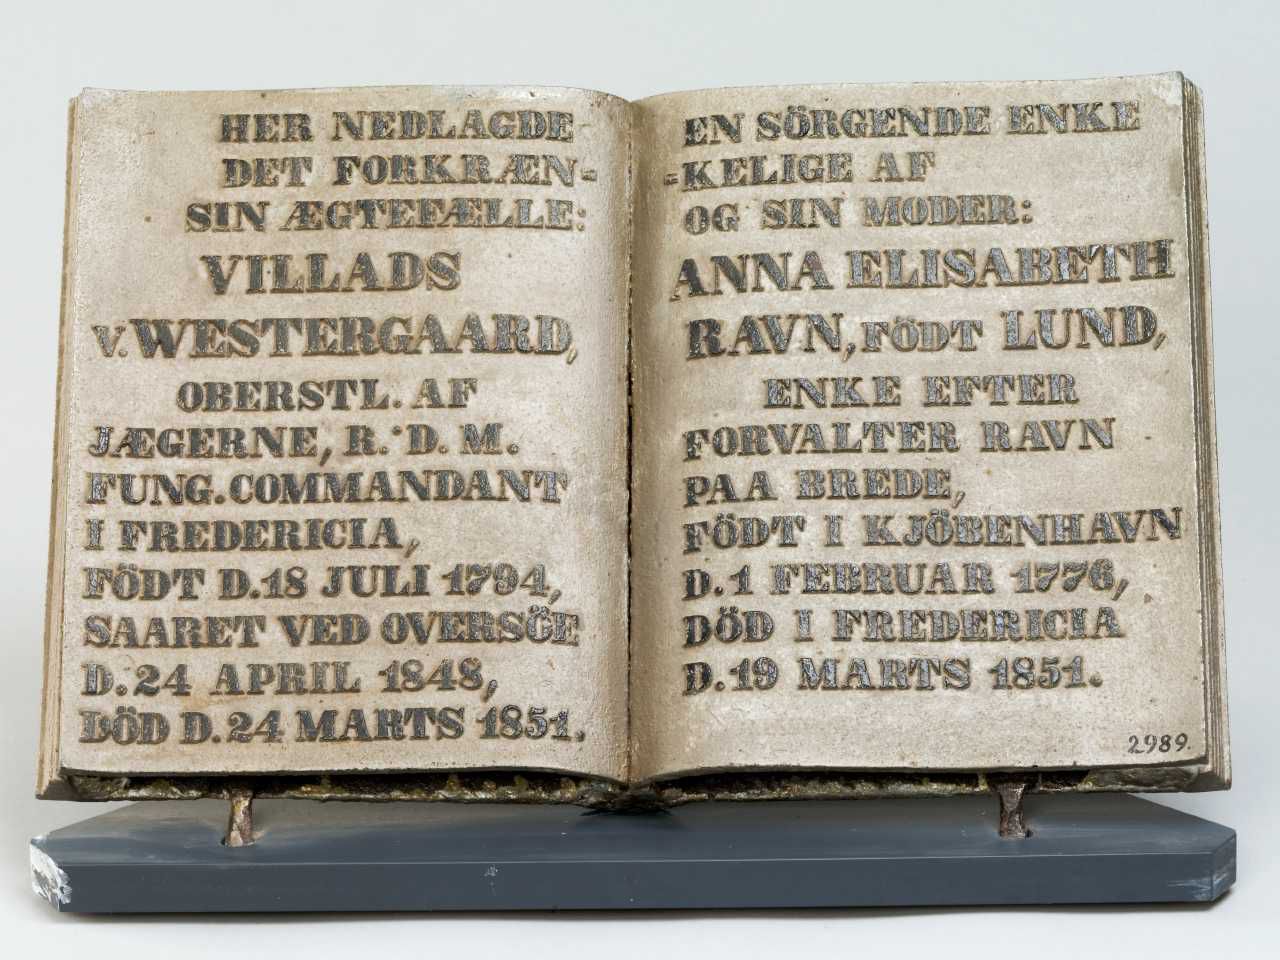 HER NEDLAGDE
DET FORKRÆN-
SIN ÆGTEFÆLLE:
VILLADS
V. WESTERGAARD,
OBERSTL. AF
JÆGERNE, R. D. M.
FUNG. COMMANDANT
I FREDERICIA,
FÖDT D. 18 JULI 1794,
SAARET VED OVERSÖE
D. 24 APRIL 1848,
DÖD D. 24 MARTS 1851.
EN SÖRGENDE ENKE
-KELIGE AF
OG SIN MODER:
ANNA ELISABETH
RAVN, FÖDT LUND,
ENKE EFTER
FORVALTER RAVN
PAA BREDE,
FÖDT I KJÖBENHAVN
D. 1 FEBRUAR 1776,
DÖD I FREDERICIA
D. 19 MARTS 1851.
2989.